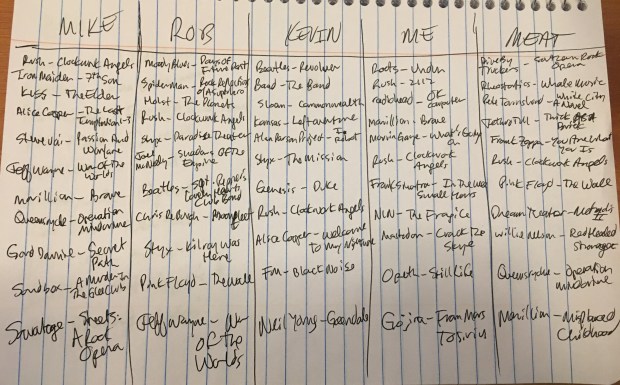 MIKE
Rush - Clockwork Angels
Iron Maiden - 7th Son
KISS - The Elder
Alice Cooper - The Last
Temptation 1-3
Steve Vai - Passion And
Warfare
Jeff Wayne - War of the
Worlds
Marillion - Brave
Queensryche - Operation
Mindcrime
Gord Downie - Secret
Path
Sandbox - A Murder In
The Glee Club
Savatage - Streets:
A Rock
Opera
ROB
Moody Blues - Days of
Future Past
Spiderman - Rock Reflections
of A Superhero
Holst - The Planets
Rush - Clockwork Angels
Styx - Paradise Theater
Joel
McNeely - Shadows Of The
Empire
Beatles - Sgt. Peppers
Lonely Hearts
Club Band
Chris DeBurgh - Moonfleet
Styx - Kilroy Was
Here
Pink Floyd - The Wall
Jeff Wayne - War
Of The
Worlds
KEVIN
Beatles - Revolver
Band - The Band
Sloan - Commonwealth
Kansas - Leftoverture
Alan Parson Project - I
Robot
Styx - The Mission
Genesis - Duke
Rush - Clockwork Angels
Alice Cooper - Welcome
to My Nightmare
FM - Black Noise
Neil Young - Greendale
ME
Roots - Undun
Rush - 2112
radiohead - OK
Computer
Marillion - Brave
Marvin Gaye - What's Going
On
Rush - Clockwork
Angels
Frank Sinatra - In The Wee
Small Hours
NIN - The Fragile
Mastodon - Crack The
Skye
Opeth - Still Life
Gojira - From Mars
To Sirius
MEAT
Drive By
Truckers - Southern Rock
Opera
Rheostatics - Whale Music
Pete Townshend - White City
A Novel
Jethro Tull - Thick As A
Brick
Frank Zappa - You Are What
You Is
Rush - Clockwork Angels
Pink Floyd - The Wall
Dream Theater - Metropolis
II
Willie Nelson - Red Headed
Stranger
Queensryche - Operation
Mindcrime
Marillion - Misplaced
Childhood